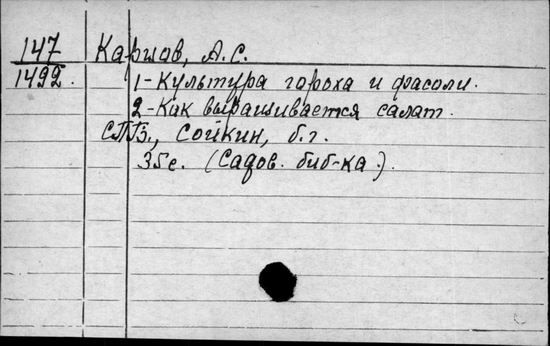 147 Каршов, А.С.
1492. 1-Культура гороха и фасоли.
2-Как выращивается салат.
СПБ., Сойкин, б.г.
35с. (Садов. биб-ка.).